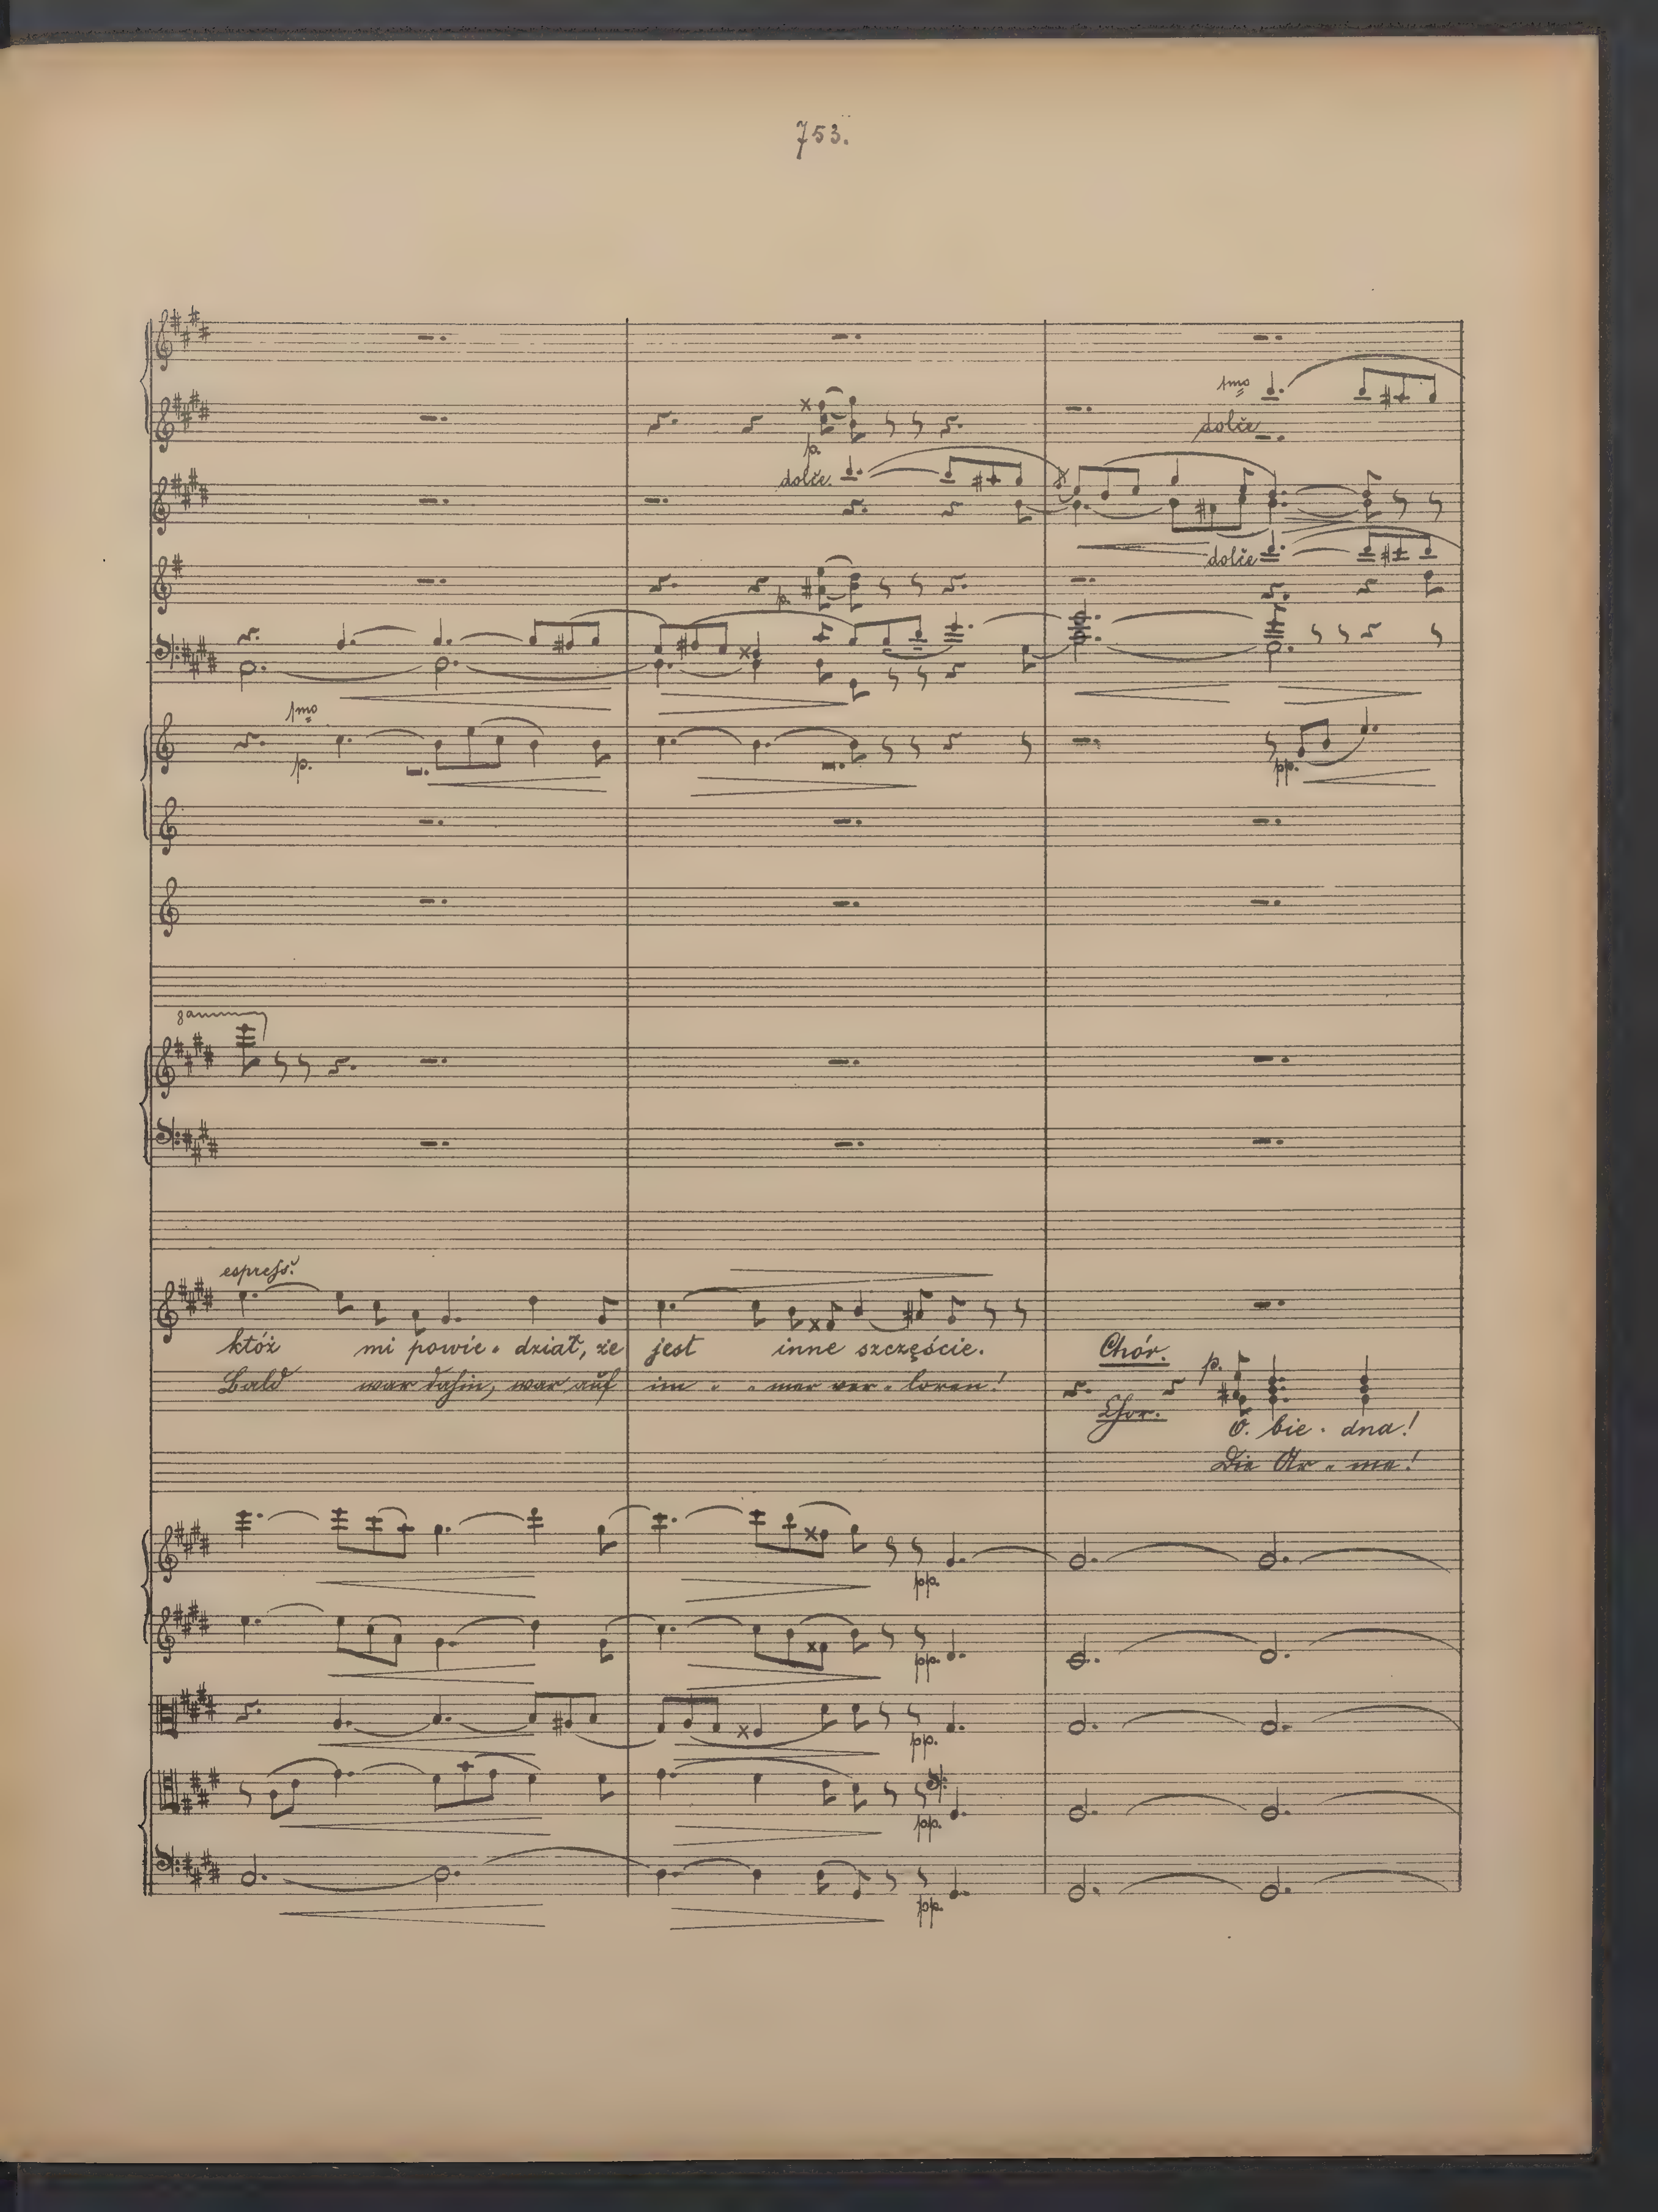 753.
1mo
dolce
p.
dolce.
dolce
p.
1mo
p.
pp.
8a
espress.
któż mi powie - dział, że jest inne szczęście.
Chór.
p.
Bald war dahin, war auf im - - mer ver - loren!
Chor.
O. bie - dna!
Die Ar - me!
pp.
pp.
pp.
pp.
pp.